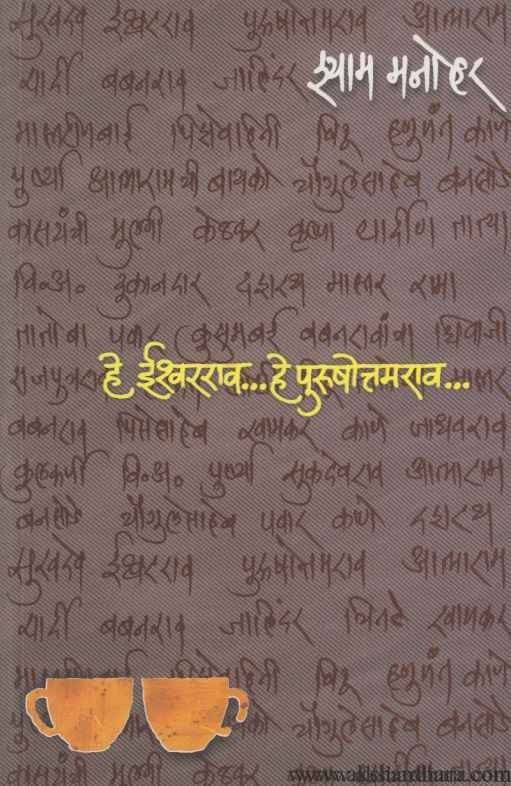 सुखदेव ईश्वरराव पुरूषोत्तमराव आत्माराम
श्याम मनोहर
यार्दी बबनराव जालिंदर
हणुमंत काणे
आत्मारामची बायको चौगुलेसाहेब बनसोडे
मुलगी केशकर कृष्णा यार्दीण तात्या
वि॰अ॰ दुकानदार दशरथ मास्तर रामा
तातोबा पवार कुसुमबाई बबनरावांचा शिवाजी
हे ईश्वरराव...हे पुरुषोत्तमराव...
बबनराव खामकर काणे जाधवराव
कुलकर्णी वि॰अ॰ पुष्पी सुकदेवराव आत्माराम
बनसोडे चौगुलेसाहेब पवार काणे दशरथ
सुखदेव ईश्वरराव पुरूषोत्तमराव आत्माराम
यार्दी बबनराव जालिंदर खामकर
हणुमंत काणे
चौगुलेसाहेब बनसोडे
मुलगी केशकर
www.akshardhara.com